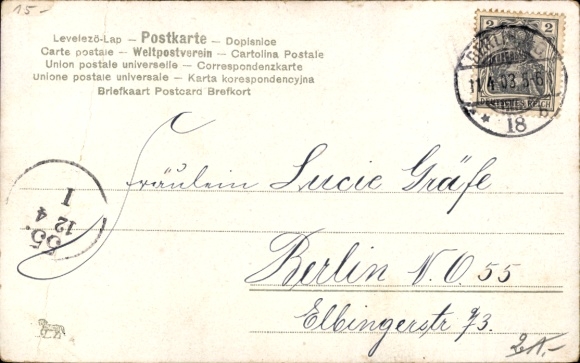 15-
Levelező-Lap – Postkarte – Dopisnice
Carte postale – Weltpostverein – Cartolina Postale
Union postale universelle – Correspondenzkarte
Unione postale universale – Karta korespondencyjna
Briefkaart Postcard Brefkort
2 2
BERLIN
11.4.03. 5-6
* 18 b *
DEUTSCHES REICH
55.
12 4
I
Fräulein Lucie Gräfe
Berlin N. O. 55
Elbingerstr 93.